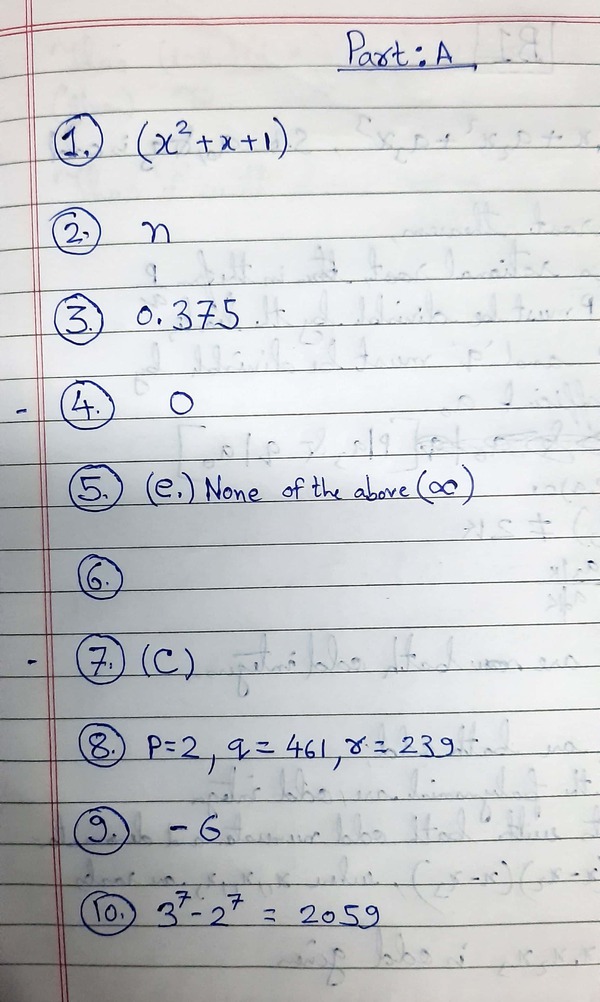 Part: A
1. (x² + x + 1)
2. n
3. 0.375
- 4. 0
5. (e.) None of the above (∞)
6.
- 7. (C)
8. P=2, q = 461, r = 239
9. - 6
10. 3⁷ - 2⁷ = 2059